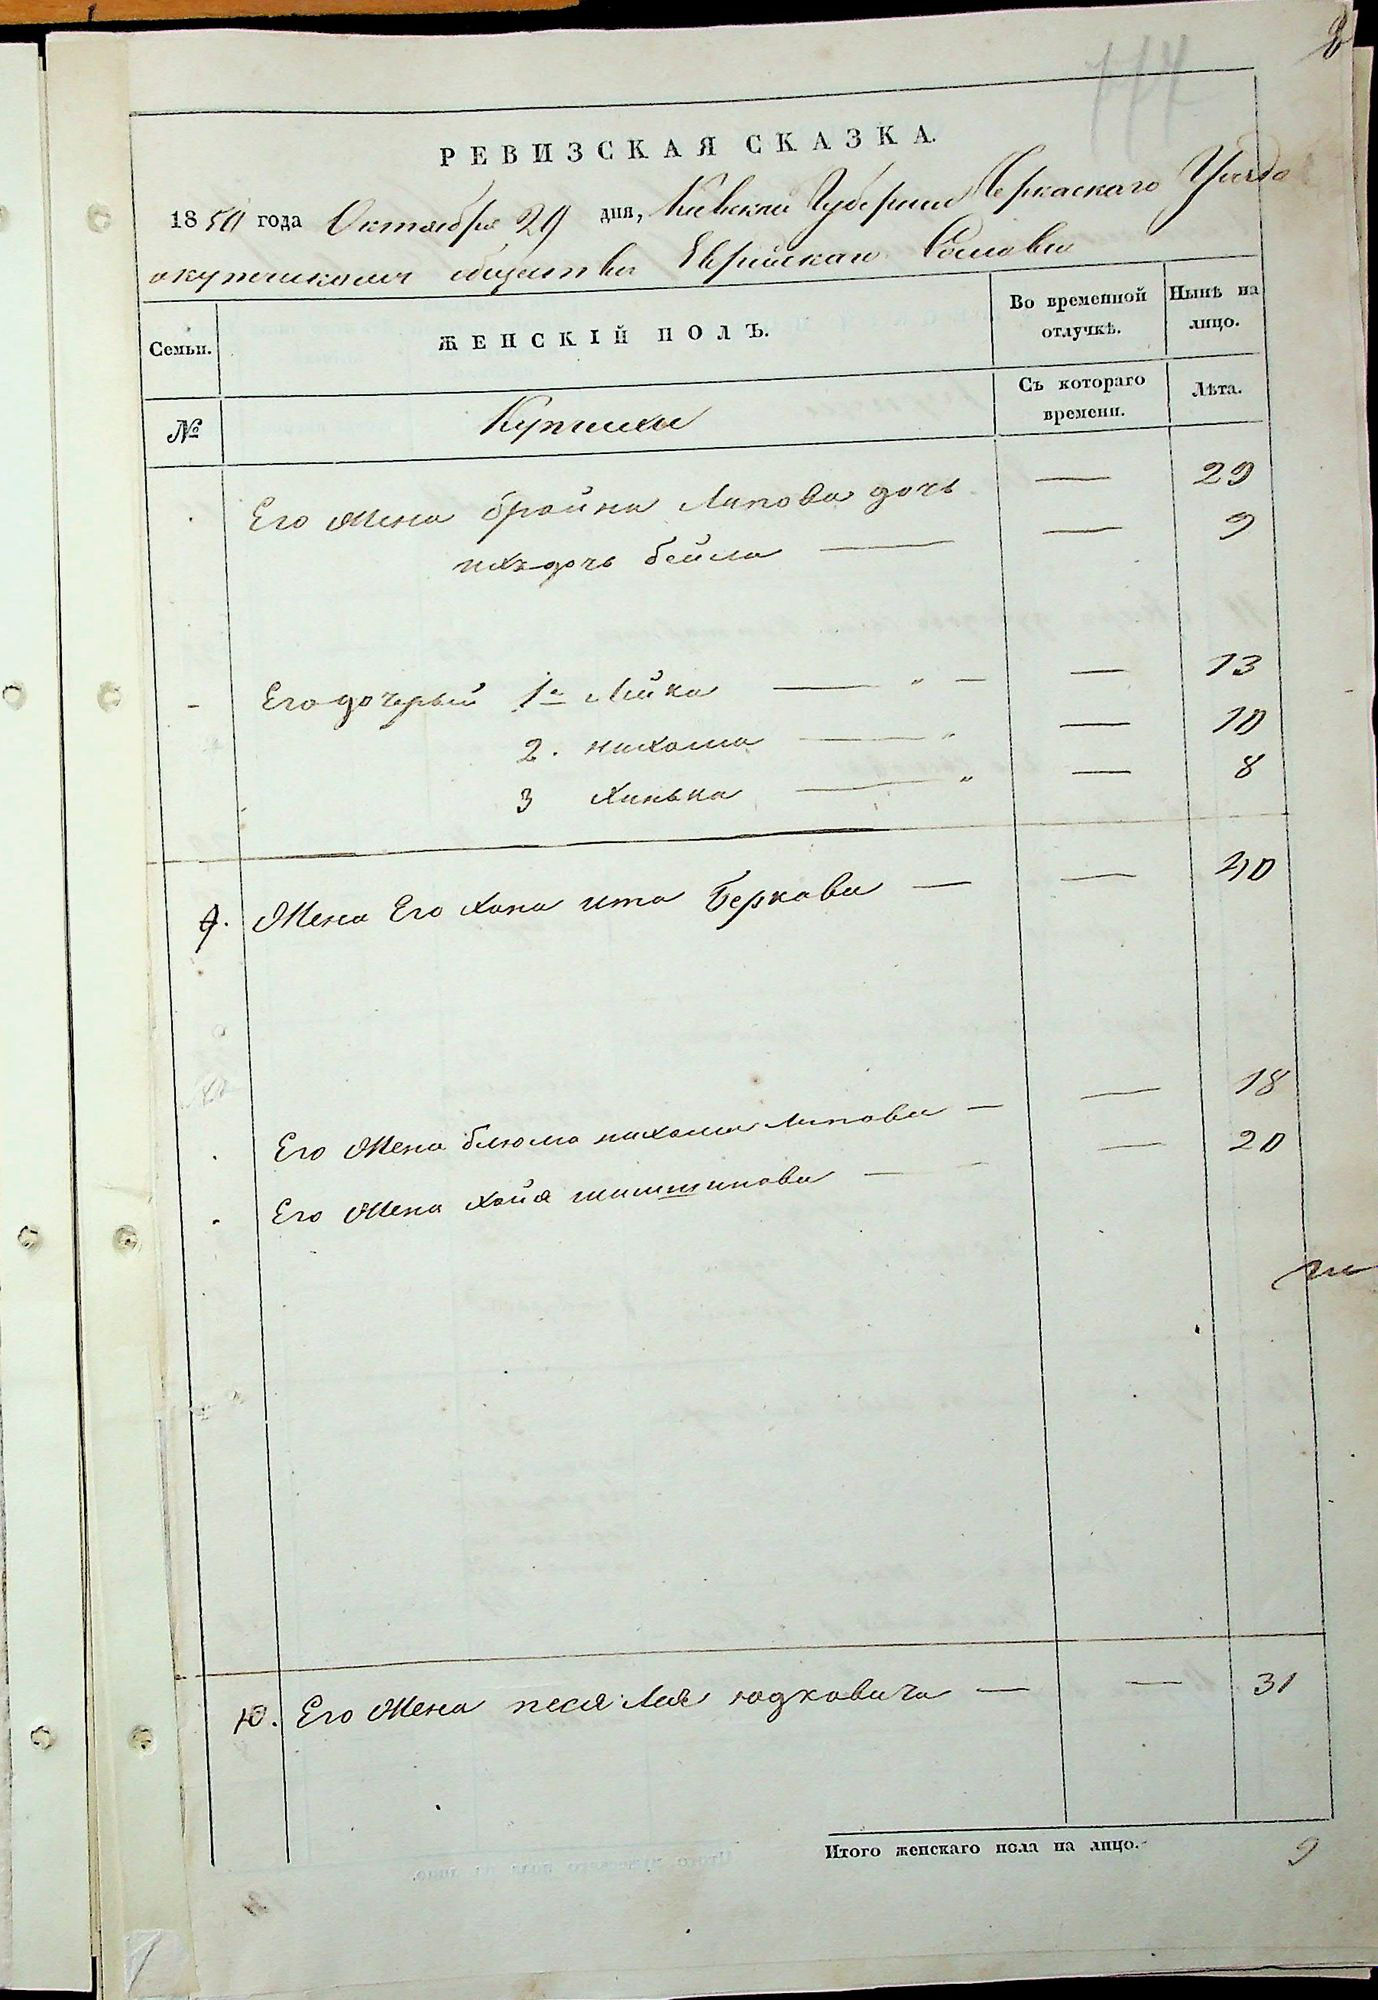 114
РЕВИЗСКАЯ СКАЗКА.
1850 года Октября 29 дня, Киевской Губернии Черкаскаго Уезда
о купическомъ обществе Еврейскаго Сословия
Семьи.
ЖЕНСКІЙ ПОЛЪ.
Во временной отлучкѣ.
Нынѣ на лицо.
№
Купчихи
Съ котораго времени.
Лѣта.
Его Жена бройна Липова дочь — 29
ихъ дочь бейла — — 9
Его дочерьи 1я Лейка — „ — — 13
2. нихама — „ — 10
3 Хинька — „ — 8
9. Жена Его Хана ита Беркова — — 40
Его Жена блюма нихама Липова — — 18
Его Жена Хайя шимшинова — — 20
10. Его Жена песя Лея юдковича — — 31
Итого женскаго пола на лицо. 9